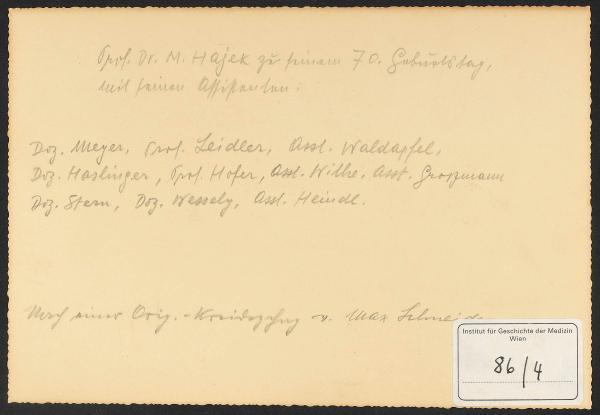 Prof. Dr. M. Hajek zu seinem 70. Geburtstag,
mit seinen Assistenten:
Doz. Meyer, Prof. Leidler, Asst. Waldapfel,
Doz. Haslinger, Prof. Hofer, Asst. Wille, Asst. Grossmann
Doz. Stern, Doz. Wessely, Asst. Heindl.
Nach einer Orig.-Kreidezchng v. Max
Institut für Geschichte der Medizin
Wien
86/4